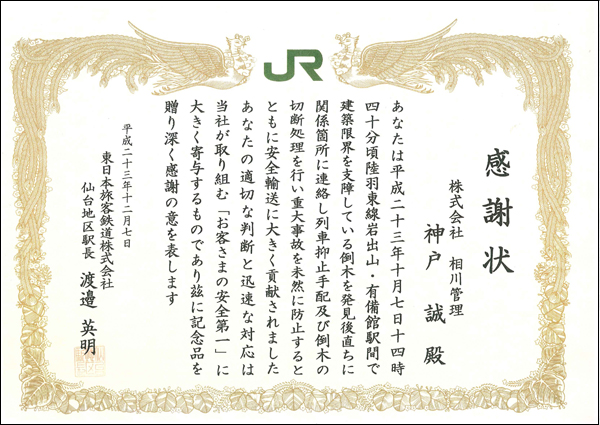 JR
感謝状
株式会社 相川管理
神戸 誠 殿
あなたは平成二十三年十月七日十四時
四十分頃陸羽東線岩出山・有備館駅間で
建築限界を支障している倒木を発見後直ちに
関係箇所に連絡し列車抑止手配及び倒木の
切断処理を行い重大事故を未然に防止すると
ともに安全輸送に大きく貢献されました
あなたの適切な判断と迅速な対応は
当社が取り組む「お客さまの安全第一」に
大きく寄与するものであり茲に記念品を
贈り深く感謝の意を表します
平成二十三年十二月七日
東日本旅客鉄道株式会社
仙台地区駅長 渡邉 英明